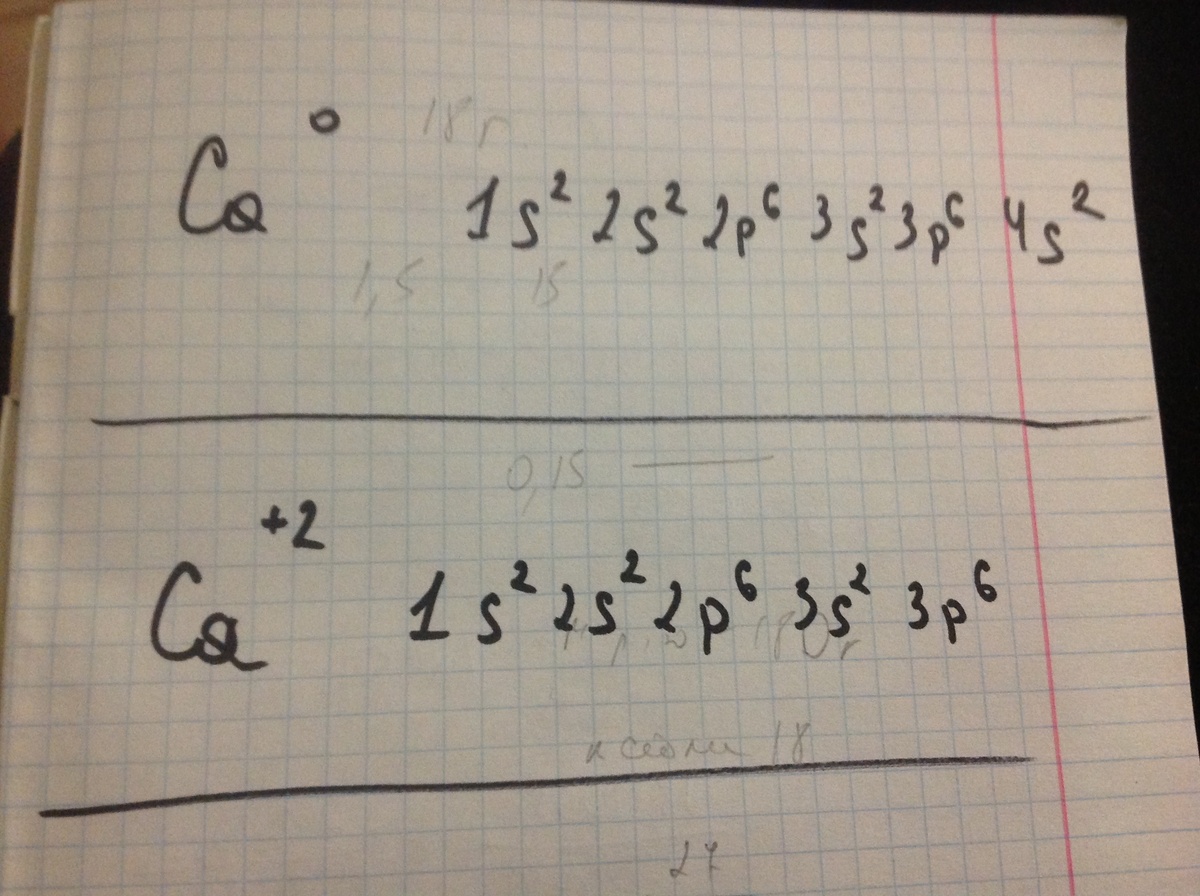 18 г
Ca⁰ 1s² 2s² 2p⁶ 3s² 3p⁶ 4s²
1,5 15
0,15
Ca⁺² 1s² 2s² 2p⁶ 3s² 3p⁶
18
27